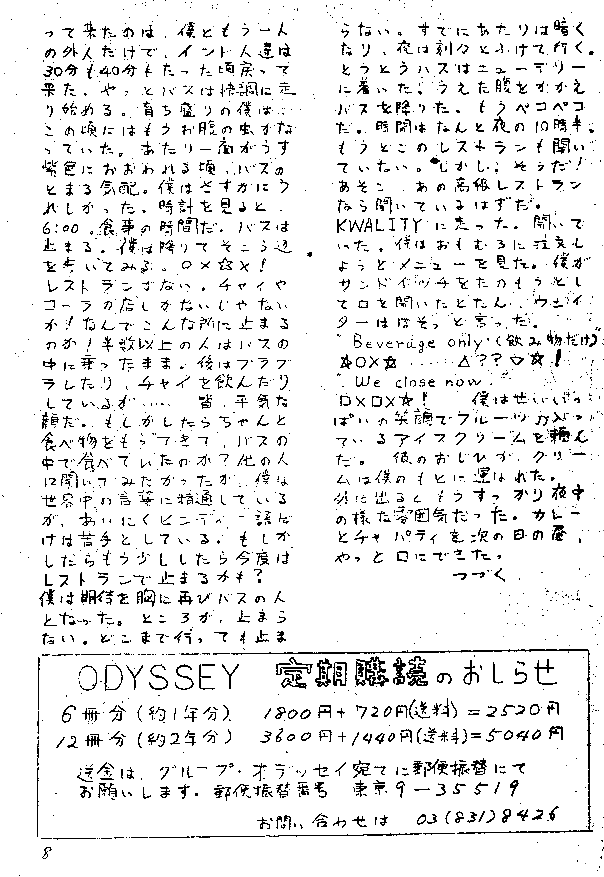 って来たのは、僕ともう一人
の外人だけで、インド人達は
30分も40分もたった頃戻って
来た。やっとバスは快調に走
り始める。育ち盛りの僕は、
この頃にはもうお腹の虫がな
っていた。あたり一面がうす
紫色におおわれる頃、バスの
とまる気配。僕はさすがにう
れしかった。時計を見ると、
6:00。食事の時間だ。バスは
止まる。僕は降りてそこら辺
を歩いてみる。○×☆×!
レストランがない。チャイや
コーラの店しかないじゃない
か!なんでこんな所に止まる
のか!半数以上の人はバスの
中に乗ったまま。後はブラブ
ラしたり、チャイを飲んだり
しているが……皆、平気な
顔だ。もしかしたらちゃんと
食べ物をもってきて、バスの
中で食べていたのか?他の人
に聞いてみたかったが、僕は
世界中の言葉に精通している
が、あいにくヒンディー語だ
けは苦手としている。もしか
したらもう少ししたら今度は
レストランで止まるかも?
僕は期待を胸に再びバスの人
となった。ところが、止まら
ない。どこまで行っても止ま
らない。すでにあたりは暗く
なり、夜は刻々とふけて行く。
とうとうバスはニューデリー
に着いた。うえた腹をかかえ
バスを降りた。もうペコペコ
だ。時間はなんと夜の10時半。
もうどこのレストランも開い
ていない。しかし、そうだ!
あそこ、あの高級レストラン
なら開いているはずだ。
KWALITYに走った。開いて
いた。僕はおもむろに注文し
ようとメニューを見た。僕が
サンドイッチをたのもうとし
て口を開いたとたん、ウェイ
ターはぼそっと言った。
"Beverage only"(飲み物だけ)
☆○×☆……△??○☆!
"We close now."
□×□×☆!　僕はせいいっ
ぱいの笑顔でフルーツの入っ
ているアイスクリームを頼ん
だ。彼のおじひか、クリー
ムは僕のもとに運ばれた。
外に出るともうすっかり夜中
の様な雰囲気だった。カレー
とチャパティを次の日の昼、
やっと口にできた。
つづく
ODYSSEY 定期購読のおしらせ
6冊分(約1年分) 1800円+720円(送料)=2520円
12冊分(約2年分) 3600円+1440円(送料)=5040円
送金は、グループ・オデッセイ宛てに郵便振替にて
お願いします。郵便振替番号 東京9-35519
お問い合わせは 03(831)8426
8